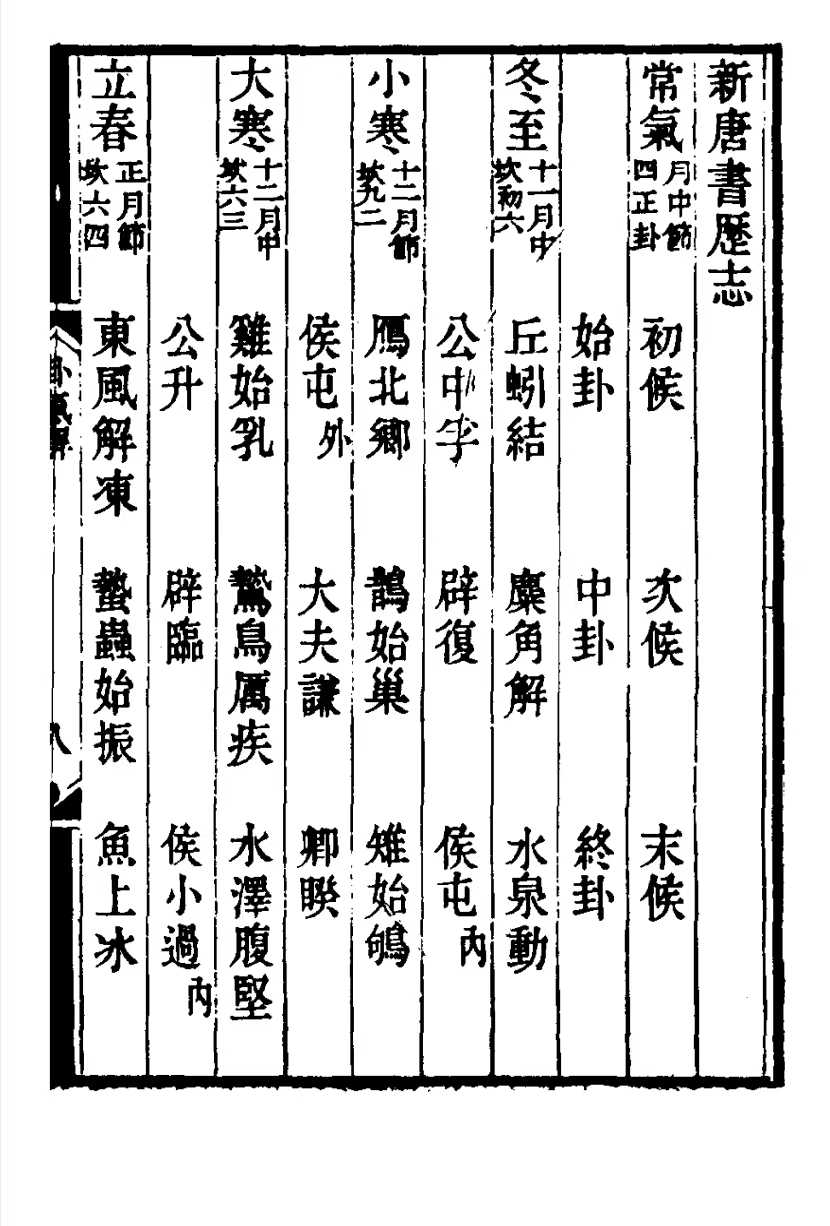 新唐書歷志
常氣 月中節 四正卦 初候 次候 末候
始卦 中卦 終卦
冬至 十一月中 坎初六 丘蚓結 麋角解 水泉動
公中孚 辟復 侯屯內
小寒 十二月節 坎九二 鴈北鄉 鵲始巢 雉始鴝
侯屯外 大夫謙 卿睽
大寒 十二月中 坎六三 雞始乳 鷙鳥厲疾 水澤腹堅
公升 辟臨 侯小過內
立春 正月節 坎六四 東風解凍 蟄蟲始振 魚上冰
卦氣解 八